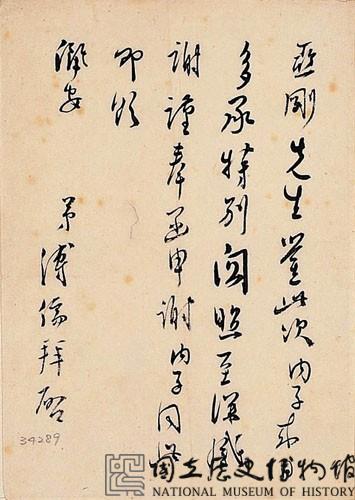 亞剛先生鑒此次內子來
多承特別關照至深感
謝謹奉函申謝內子同此
即頌
潭安
弟溥儒拜啓
34289
國立歷史博物館
NATIONAL MUSEUM OF HISTORY